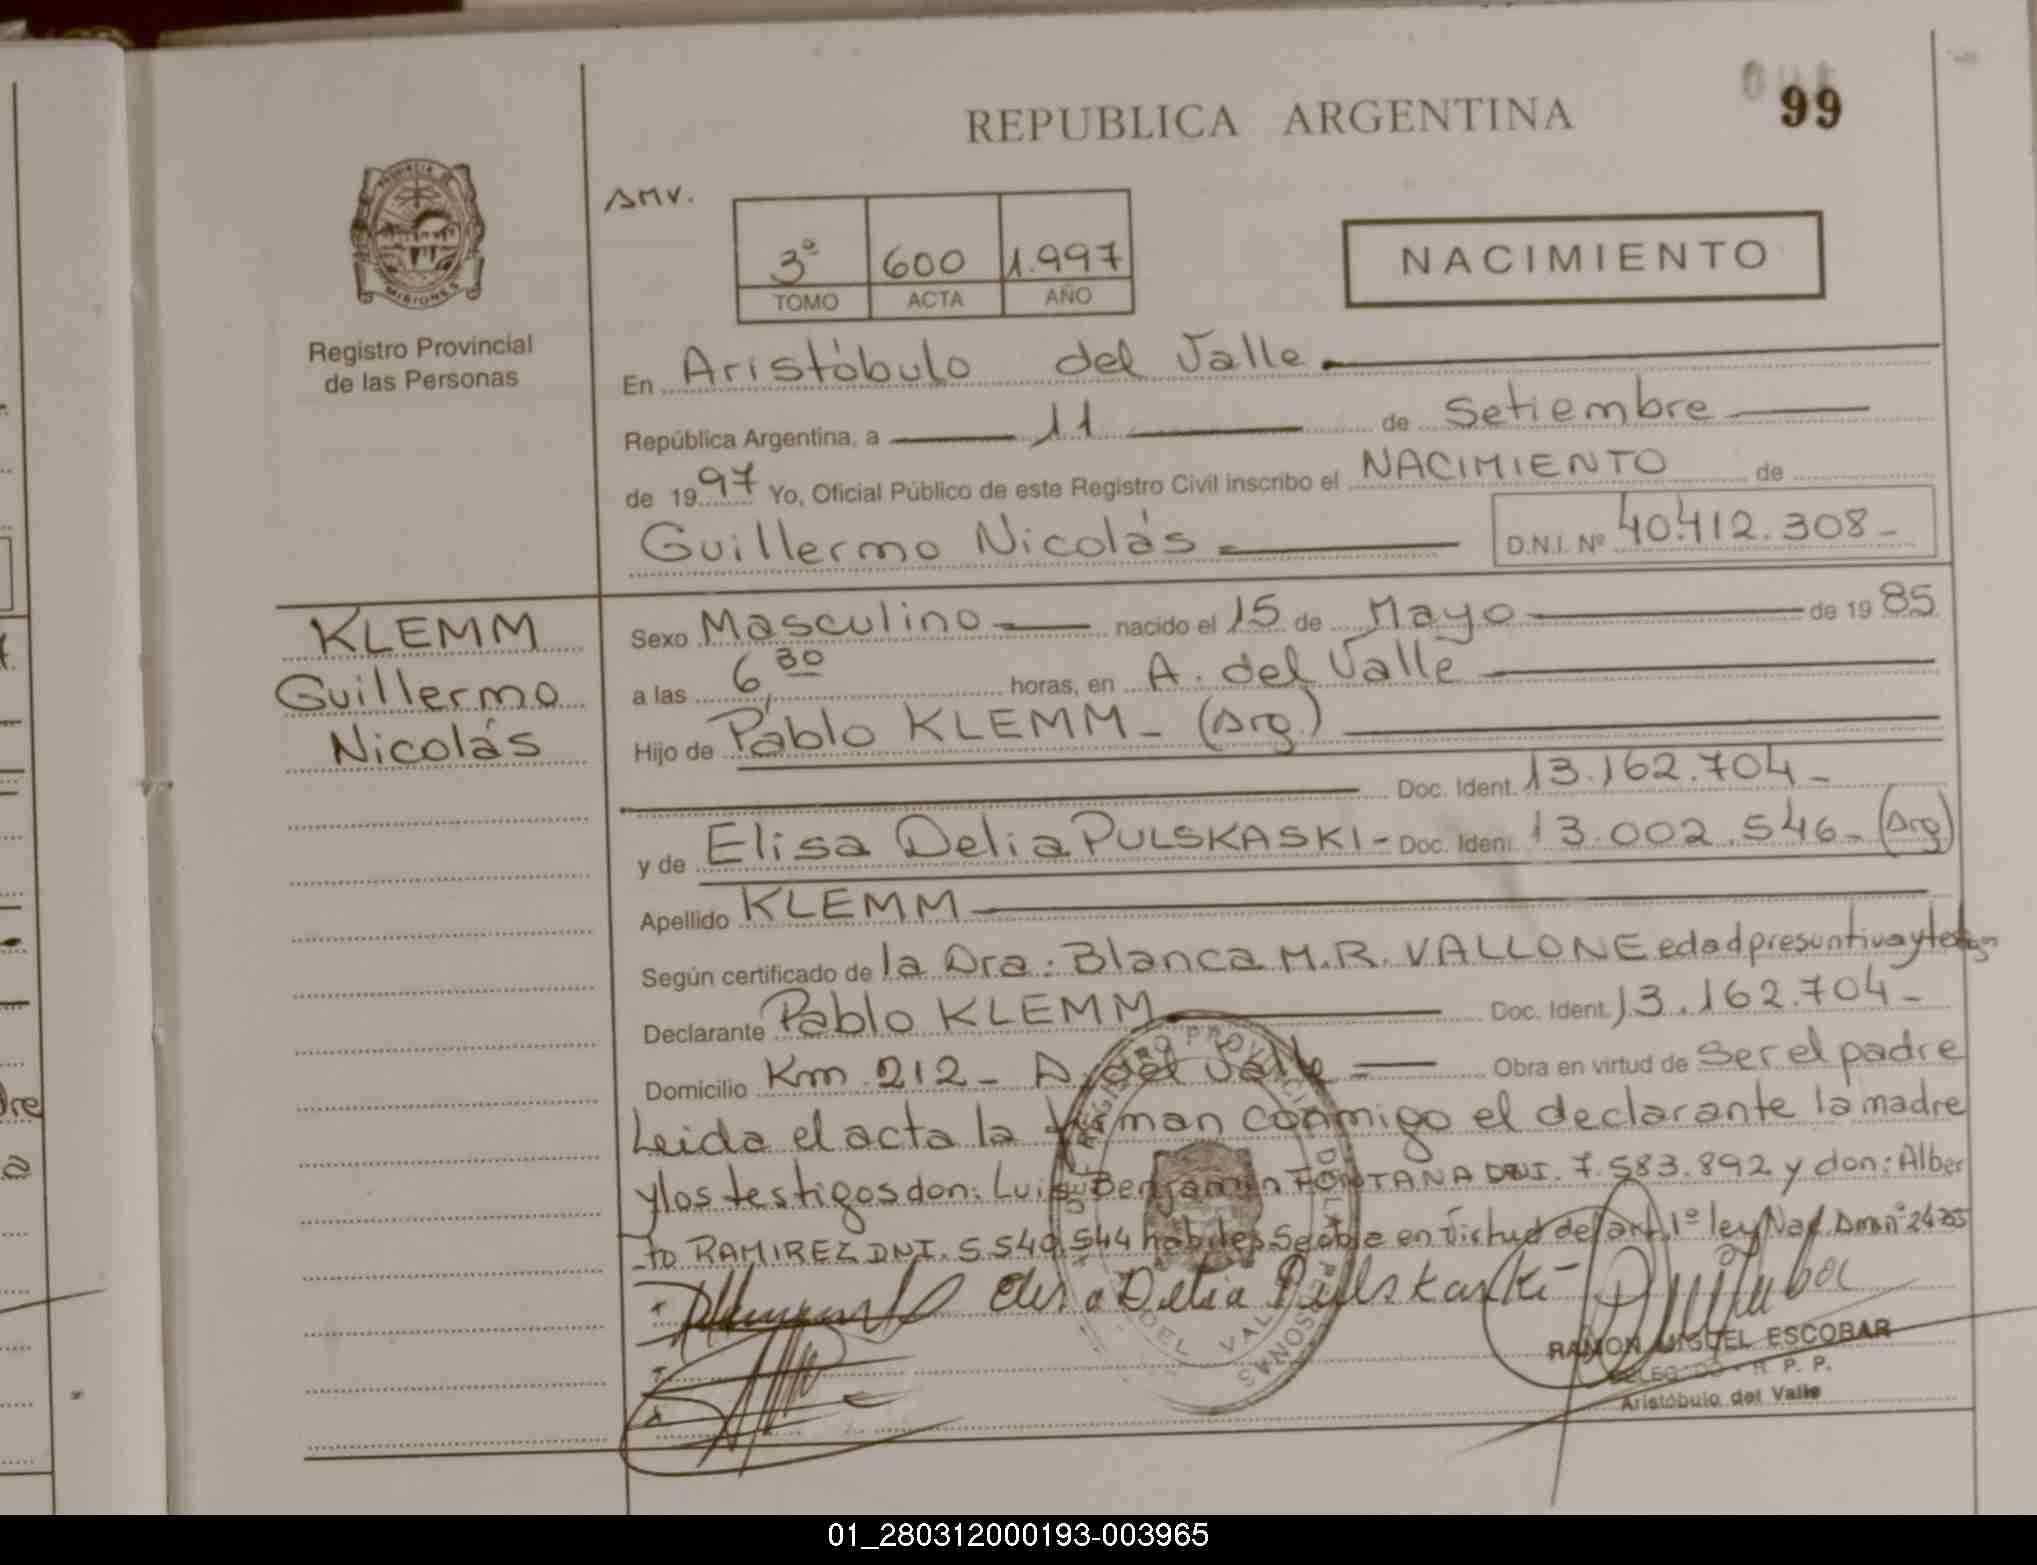 REPUBLICA ARGENTINA
99
PROVINCIA DE
MISIONES
Registro Provincial
de las Personas
AMV.
3º 600 1.997
TOMO ACTA AÑO
NACIMIENTO
En Aristóbulo del Valle
República Argentina, a 11 de Setiembre
de 1997 Yo, Oficial Público de este Registro Civil inscribo el NACIMIENTO de
Guillermo Nicolás D.N.I. Nº 40.412.308-
KLEMM
Guillermo
Nicolás
Sexo Masculino nacido el 15 de Mayo de 1985
a las 6,30 horas, en A. del Valle
Hijo de Pablo KLEMM - (Arg.)
Doc. Ident. 13.162.704-
y de Elisa Delia PULSKASKI - Doc. Ident. 13.002.546- (Arg)
Apellido KLEMM
Según certificado de la Dra: Blanca M.R. VALLONE edad presuntiva y
Declarante Pablo KLEMM Doc. Ident. 13.162.704-
Domicilio Km 212 - A. del Valle Obra en virtud de Ser el padre
Leida el acta la firman conmigo el declarante la madre
y los testigos don: Luis Benjamin FONTANA DNI. 7.583.892 y don: Alber
to RAMIREZ DNI. 5.540.544 habiles Se able en Virtud del art. 1º ley Nac.
Elisa Delia Pulskaski
RAMON MIGUEL ESCOBAR
DELEGADO R. P. P.
Aristóbulo del Valle
01_280312000193-003965